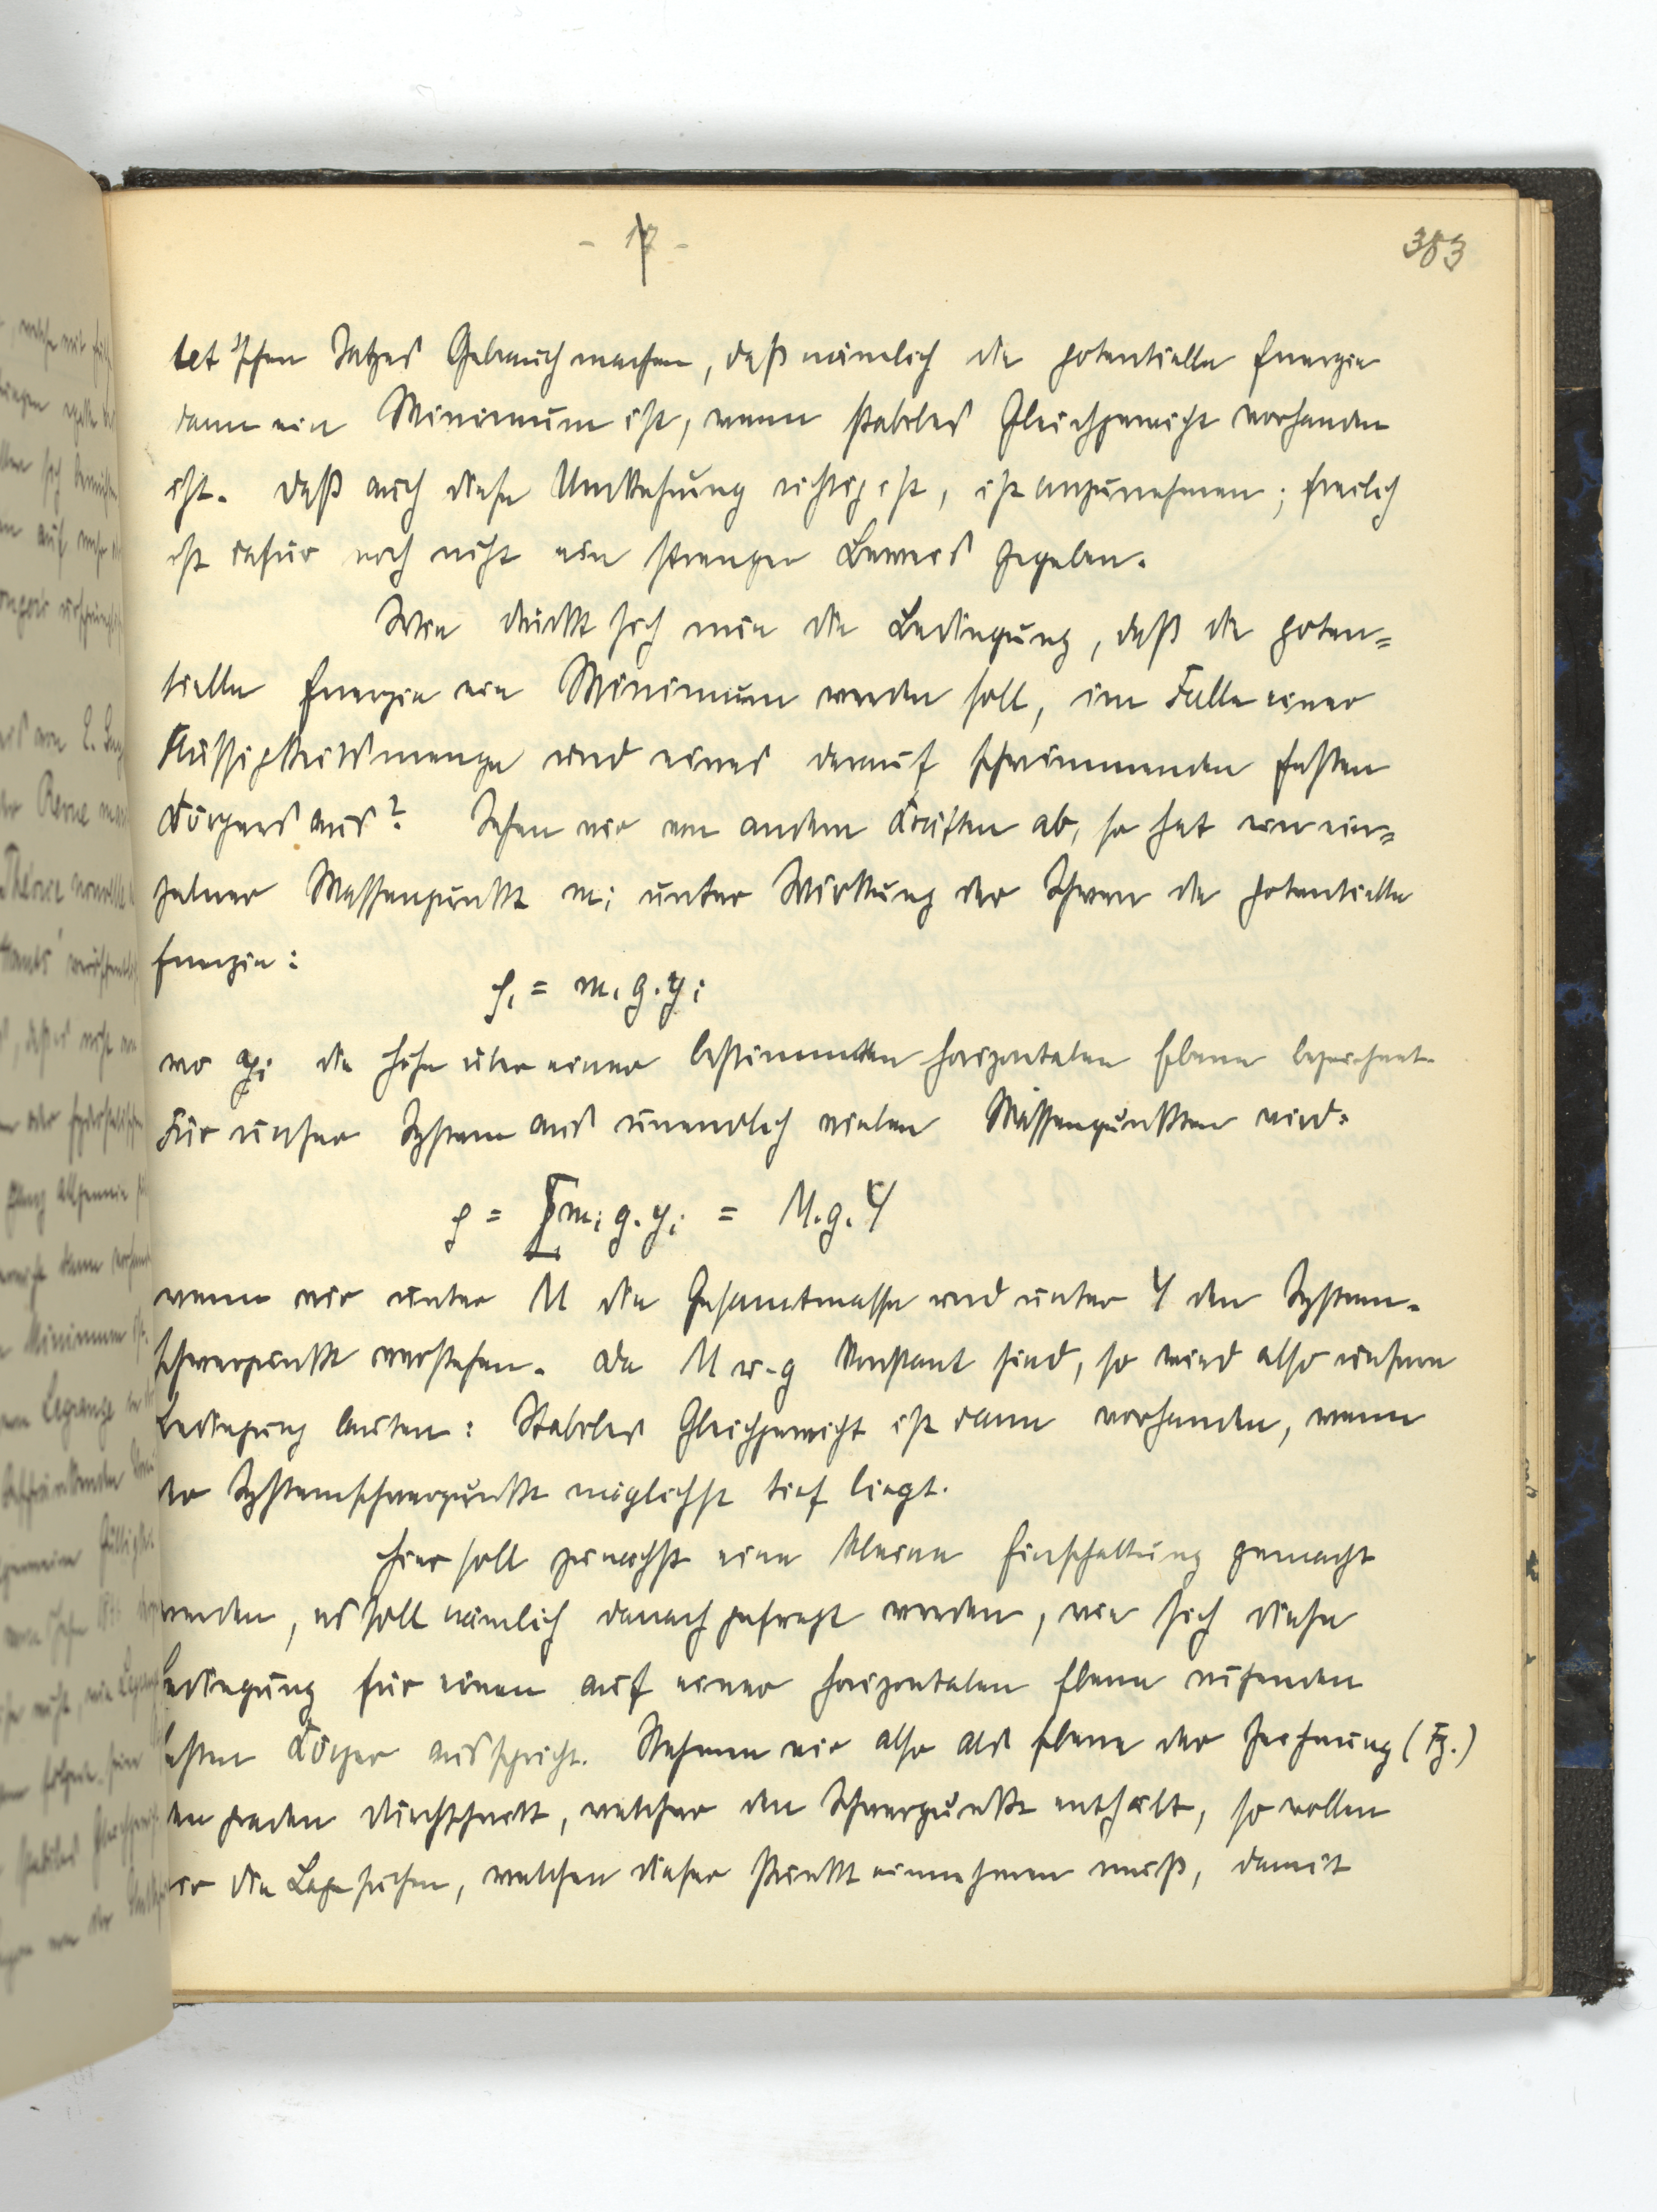 - 17 -
383
let'schen Satzes Gebrauch machen, daß nämlich die potentielle Energie
dann ein Minimum ist, wenn stabiles Gleichgewicht vorhanden
ist. Daß auch diese Umkehrung richtig ist, ist anzunehmen; freilich
ist dafür noch nicht ein strenger Beweis gegeben.
Wie drückt sich nun die Bedingung, daß die poten=
tielle Energie ein Minimum werden soll, im Falle einer
Flüssigkeitsmenge und eines darauf schwimmenden festen
Körpers aus? Sehen wir von andern Kräften ab, so hat ein ein=
zelner Massenpunkt mi unter Wirkung der Schwere die potentielle
Energie:
φi = mi g. yi
wo yi die Höhe über einer bestimmten horizontalen Ebene bezeichnet.
Für unser System aus unendlich vielen Massenpunkten wird:
φ = ∑ mi g. yi = M. g. Y
wenn wir unter M die Gesamtmasse und unter Y den System-
schwerpunkt verstehen. Da M u. g konstant sind, so wird also unsere
Bedingung lauten: Stabiles Gleichgewicht ist dann vorhanden, wenn
der Systemschwerpunkt möglichst tief liegt.
Hier soll zunächst eine kleine Einschaltung gemacht
werden, es soll nämlich danach gefragt werden, wie sich diese
Bedingung für einen auf einer horizontalen Ebene ruhenden
festen Körper ausspricht. Nehmen wir also als Ebene der Zeichnung (Fg.)
den graden Durchschnitt, welcher den Schwerpunkt enthält, so wollen
wir die Lage suchen, welchen dieser Punkt einnehmen muß, damit